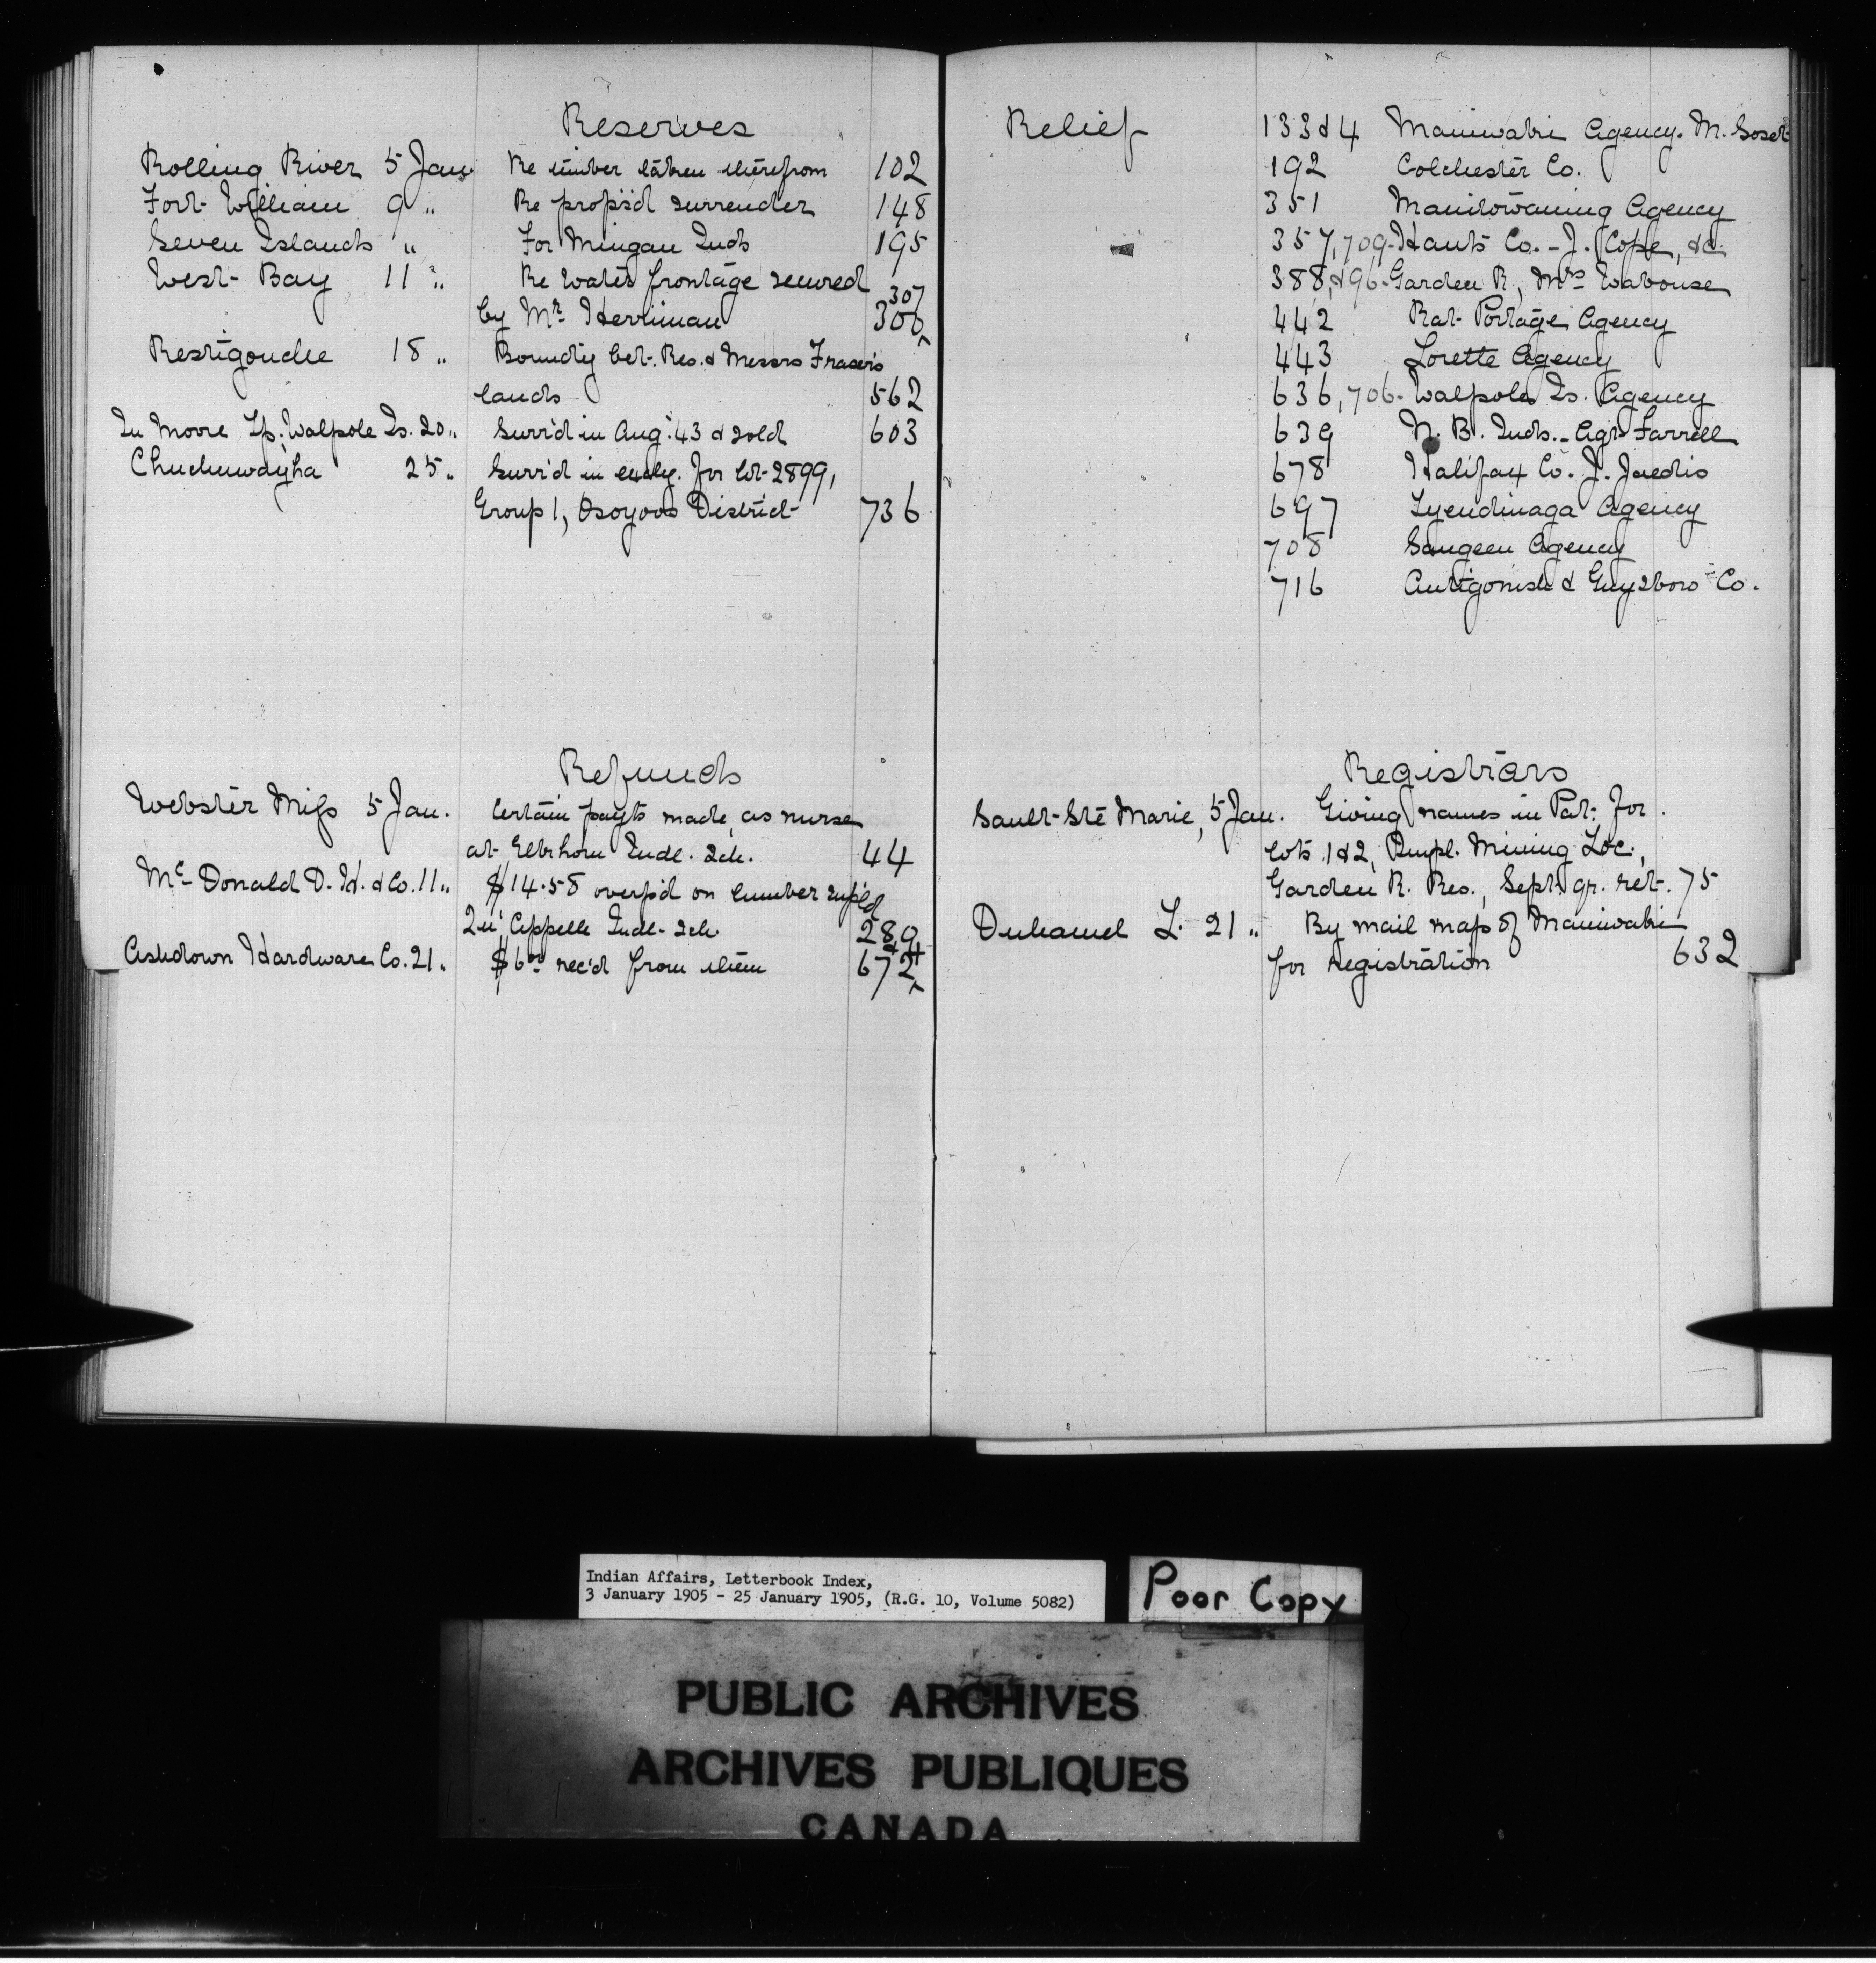 Reserves
Rolling River 5 Jan. Re timber taken therefrom 102
Fort William 9 " Re prop's'd surrender 148
Seven Islands " For Mingan Inds 195
West Bay 11 " Re Water frontage secured 307
by Mr. Herriman 300
Restigouche 18 " Boundy bet. Res. & Messrs Fraser's
lands 562
In Moore Tp. Walpole Is. 20 " Surr'd in Aug. '43 & sold 603
Chuchuwayha 25 " Surr'd in exchg. for lot 2899,
Group 1, Osoyoos District 736
Refunds
Webster Miss 5 Jan. Certain payts made, as nurse
at Elkhorn Indl. Sch. 44
McDonald D. H. & Co. 11 " $14.58 overp'd on lumber supl'd
Qu'Appelle Indl. Sch. 289
Ashdown Hardware Co. 21 " $6.00 rec'd from them 672
Relief 133 & 4 Maniwaki Agency. M.
192 Colchester Co.
351 Manitowaning Agency
357, 709 - Hants Co. - J. Cope, &c.
388, & 96 - Garden R., Mrs Wabouse
442 Rat Portage Agency
443 Lorette Agency
636, 706 - Walpole Is. Agency
639 N. B. Inds. - Agt Farrell
678 Halifax Co. J.
697 Tyendinaga Agency
708 Saugeen Agency
716 Antigonish & Guysboro Co.
Registrars
Sault Ste Marie, 5 Jan. Giving names in Pat. for
lots 1 & 2, Mining Loc.,
Garden R. Res., Sept. gr. ret. 75
Duhamel L. 21 " By mail map of Maniwaki
for registration 632
Indian Affairs, Letterbook Index,
3 January 1905 - 25 January 1905, (R.G. 10, Volume 5082)
Poor Copy
PUBLIC ARCHIVES
ARCHIVES PUBLIQUES
CANADA